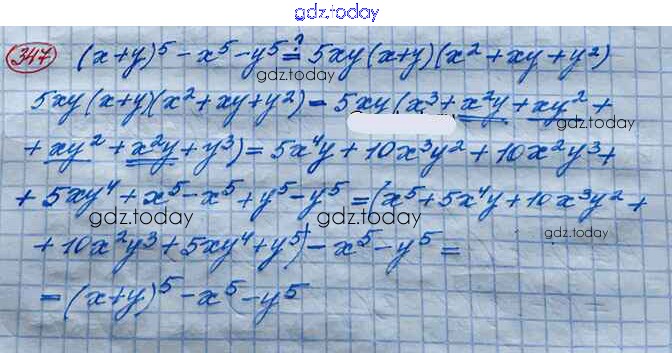 gdz.today
347 (x+y)^5 - x^5 - y^5 ?= 5xy(x+y)(x^2+xy+y^2)
gdz.today
5xy(x+y)(x^2+xy+y^2) = 5xy(x^3+x^2y+xy^2+
gdz.today
+xy^2+x^2y+y^3) = 5x^4y+10x^3y^2+10x^2y^3+
+5xy^4+x^5-x^5+y^5-y^5 = (x^5+5x^4y+10x^3y^2+
gdz.today gdz.today gdz.today
+10x^2y^3+5xy^4+y^5)-x^5-y^5 =
= (x+y)^5 - x^5 - y^5